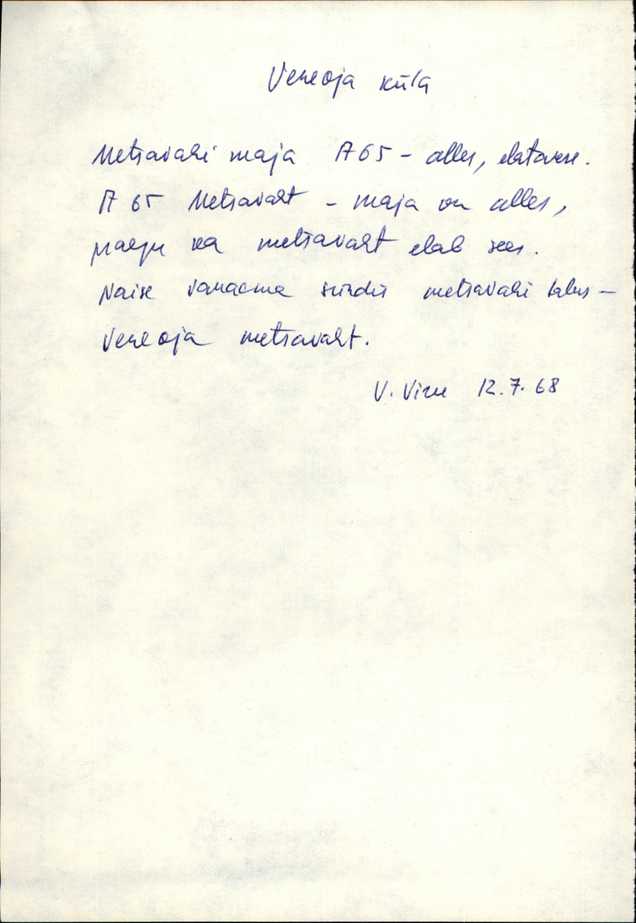 Veneoja küla
Metsavahi maja A65 – alles, elatavuse.
A 65 Metsavaht – maja on alles,
praegu ka metsavaht elab sees.
Naise vanaema sündis metsavahi talus –
Veneoja metsavaht.
V. Viru 12.7.68